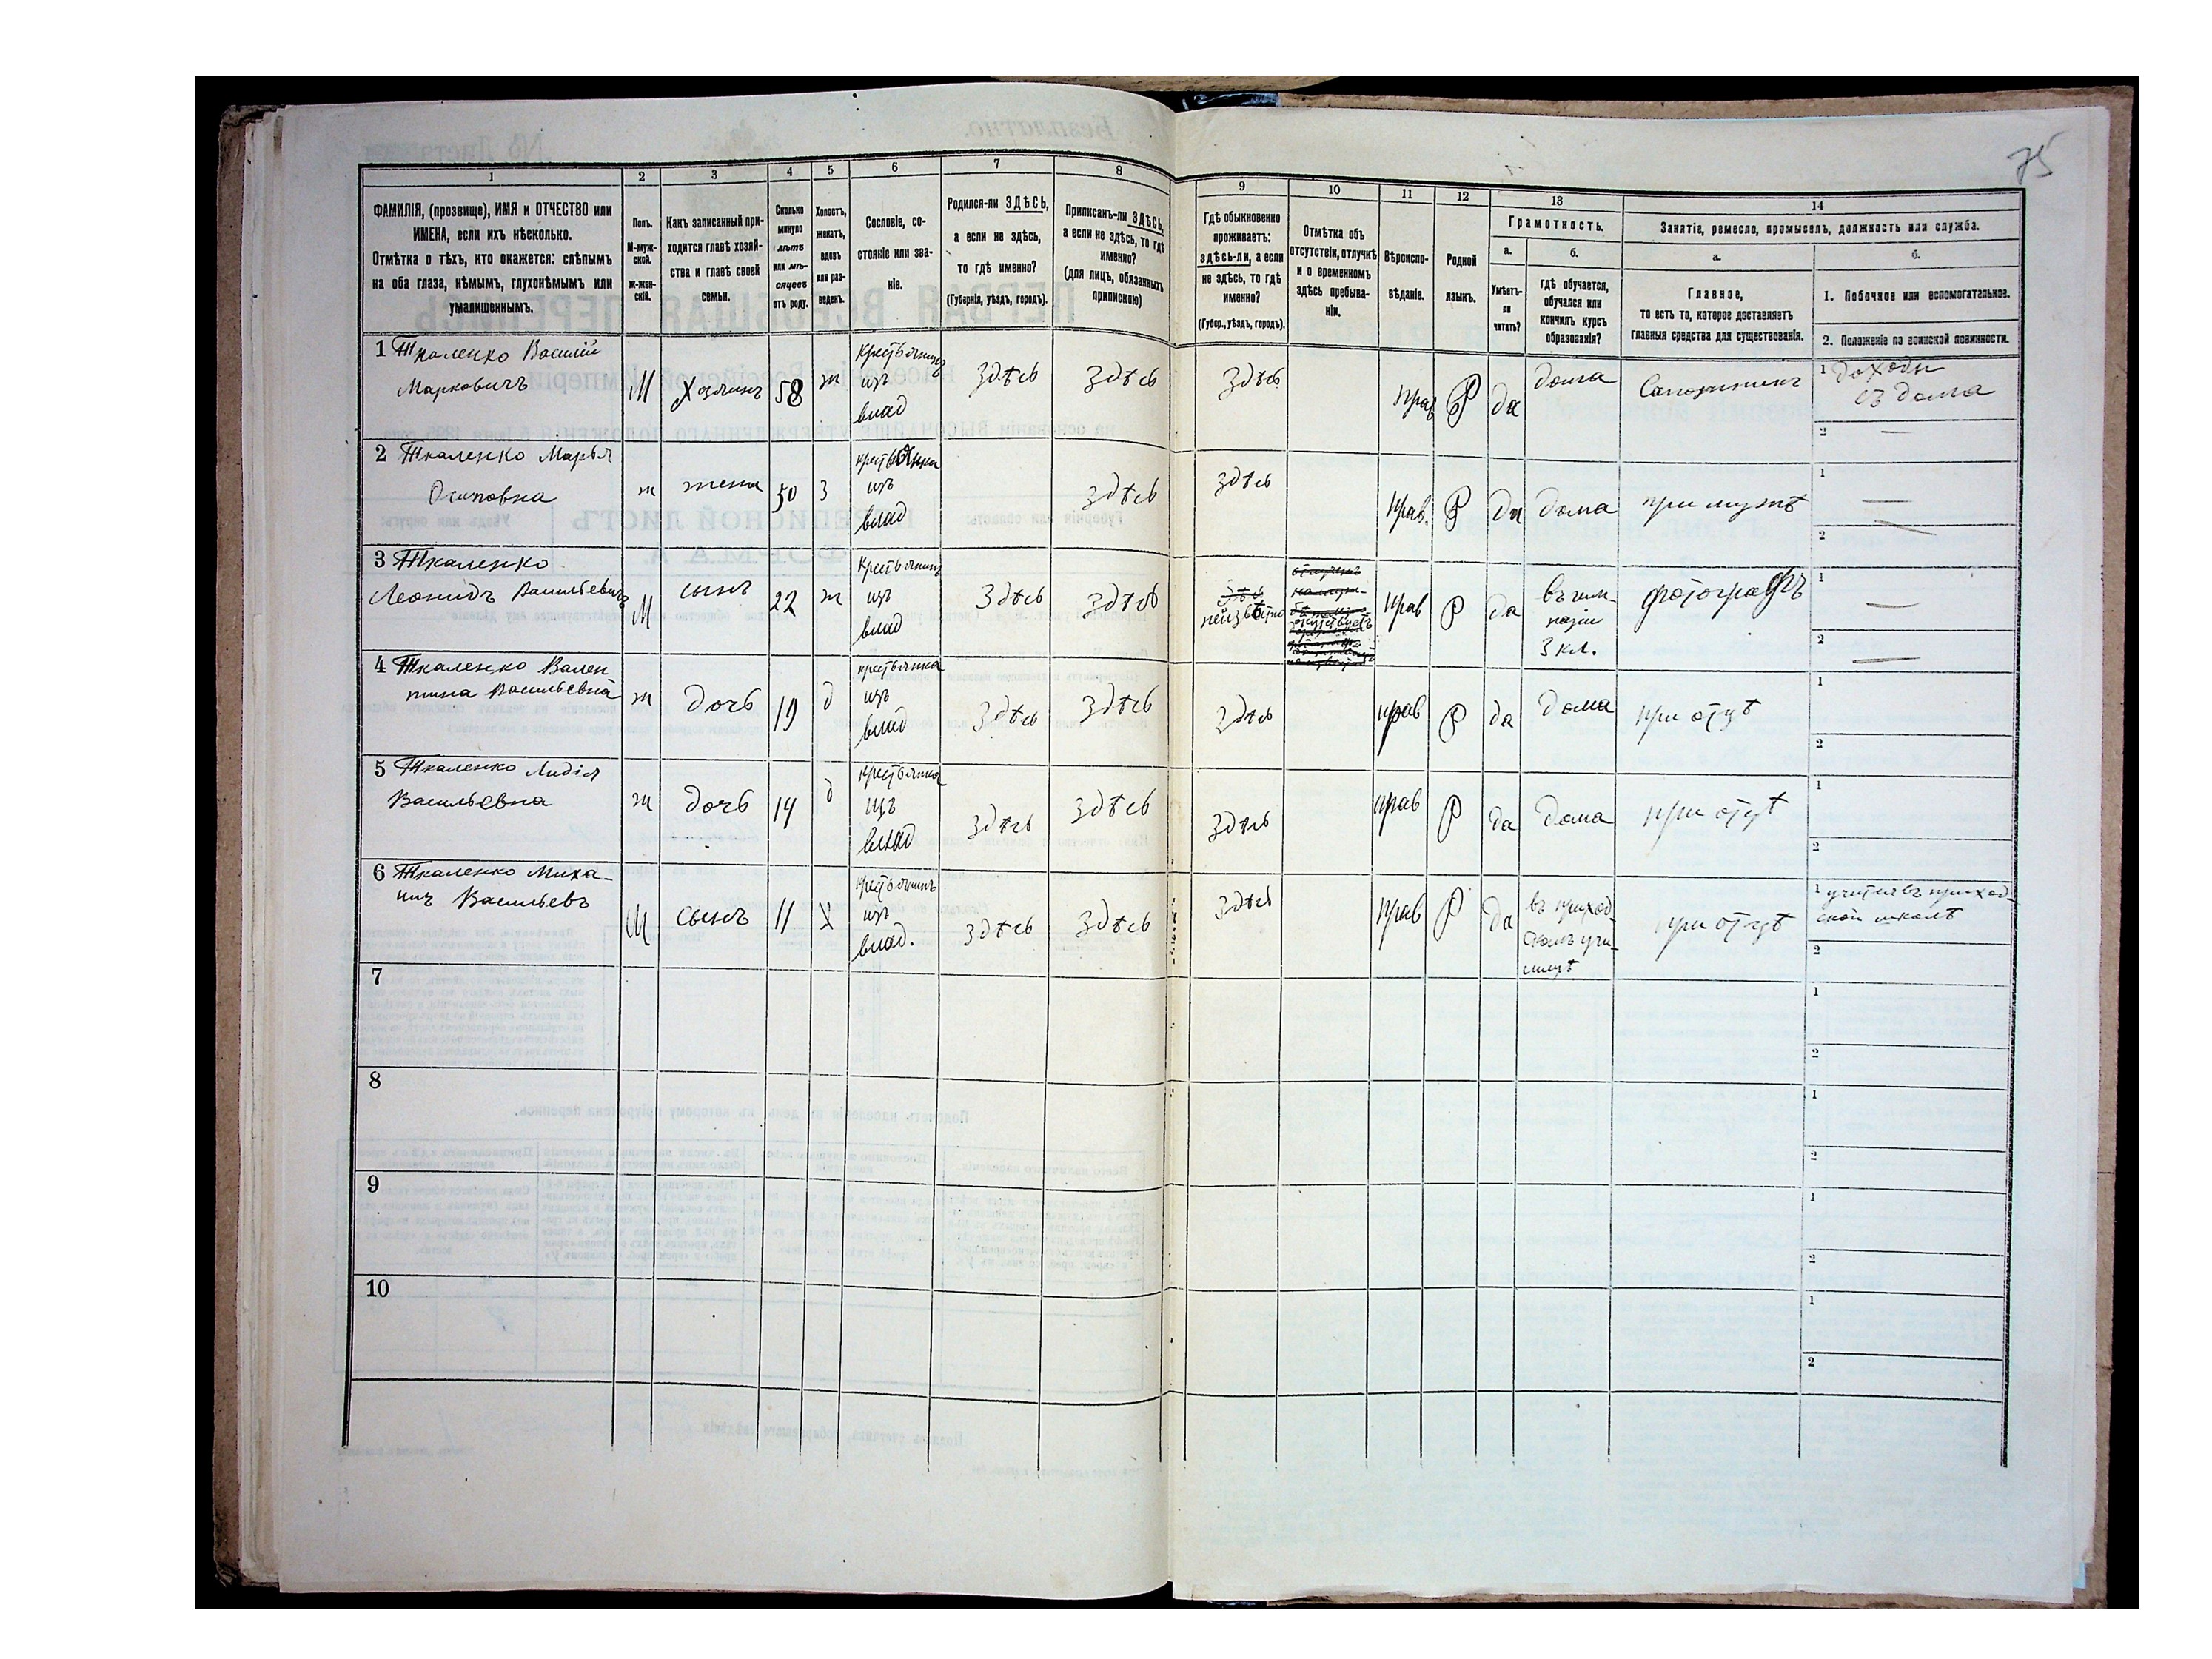 75
1
2
3
4
5
6
7
8
9
10
11
12
13
14
ФАМИЛІЯ, (прозвище), ИМЯ и ОТЧЕСТВО или
ИМЕНА, если ихъ нѣсколько.
Отмѣтка о тѣхъ, кто окажется: слѣпымъ
на оба глаза, нѣмымъ, глухонѣмымъ или
умалишеннымъ.
Полъ.
М-муж-
ской.
ж-жен-
скій.
Какъ записанный при-
ходится главѣ хозяй-
ства и главѣ своей
семьи.
Сколько
минуло
лѣтъ
или мѣ-
сяцевъ
отъ роду.
Холостъ,
женатъ,
вдовъ
или раз-
веденъ.
Сословіе, со-
стояніе или зва-
ніе.
Родился-ли ЗДѢСЬ,
а если не здѣсь,
то гдѣ именно?
(Губернія, уѣздъ, городъ).
Приписанъ-ли ЗДѢСЬ,
а если не здѣсь, то гдѣ
именно?
(для лицъ, обязанныхъ
припискою)
Гдѣ обыкновенно
проживаетъ:
здѣсь-ли, а если
не здѣсь, то гдѣ
именно?
(Губер., уѣздъ, городъ).
Отмѣтка объ
отсутствіи, отлучкѣ
и о временномъ
здѣсь пребыва-
ніи.
Вѣроиспо-
вѣданіе.
Родной
языкъ.
Грамотность.
а.
Умѣетъ-
ли
читать?
б.
гдѣ обучается,
обучался или
кончилъ курсъ
образованія?
Занятіе, ремесло, промыселъ, должность или служба.
а.
Главное,
то есть то, которое доставляетъ
главныя средства для существованія.
б.
1. Побочное или вспомогательное.
2. Положеніе по воинской повинности.
1 Ткаленко Василій
Марковичъ
М
Хозяинъ
58
ж
крестьянинъ
изъ
влад
здѣсь
здѣсь
здѣсь
прав
Р
да
дома
Сапожникъ
1 доходы
съ дома
2 —
2 Ткаленко Марья
Осиповна
ж
жена
50
З
крестьянка
изъ
влад
здѣсь
здѣсь
прав.
Р
да
дома
при мужѣ
1 —
2 —
3 Ткаленко
Леонидъ Васильевичъ
М
сынъ
22
ж
крестьянинъ
изъ
влад
здѣсь
здѣсь
здѣсь
неизвѣстно
прав
Р
да
въ гим-
назіи
3 кл.
фотографъ
1 —
2 —
4 Ткаленко Вален
тина Васильевна
ж
дочь
19
д
крестьянка
изъ
влад
здѣсь
здѣсь
здѣсь
прав
Р
да
дома
при отцѣ
1
2
5 Ткаленко Лидія
Васильевна
ж
дочь
14
д
крестьянка
изъ
влад
здѣсь
здѣсь
здѣсь
прав
Р
да
дома
при отцѣ
1
2
6 Ткаленко Миха-
илъ Васильевъ
М
сынъ
11
Х
крестьянинъ
изъ
влад.
здѣсь
здѣсь
здѣсь
прав
Р
да
въ приход-
скомъ учи-
лищѣ
при отцѣ
1 учится въ приход-
ской школѣ
2
7
1
2
8
1
2
9
1
2
10
1
2